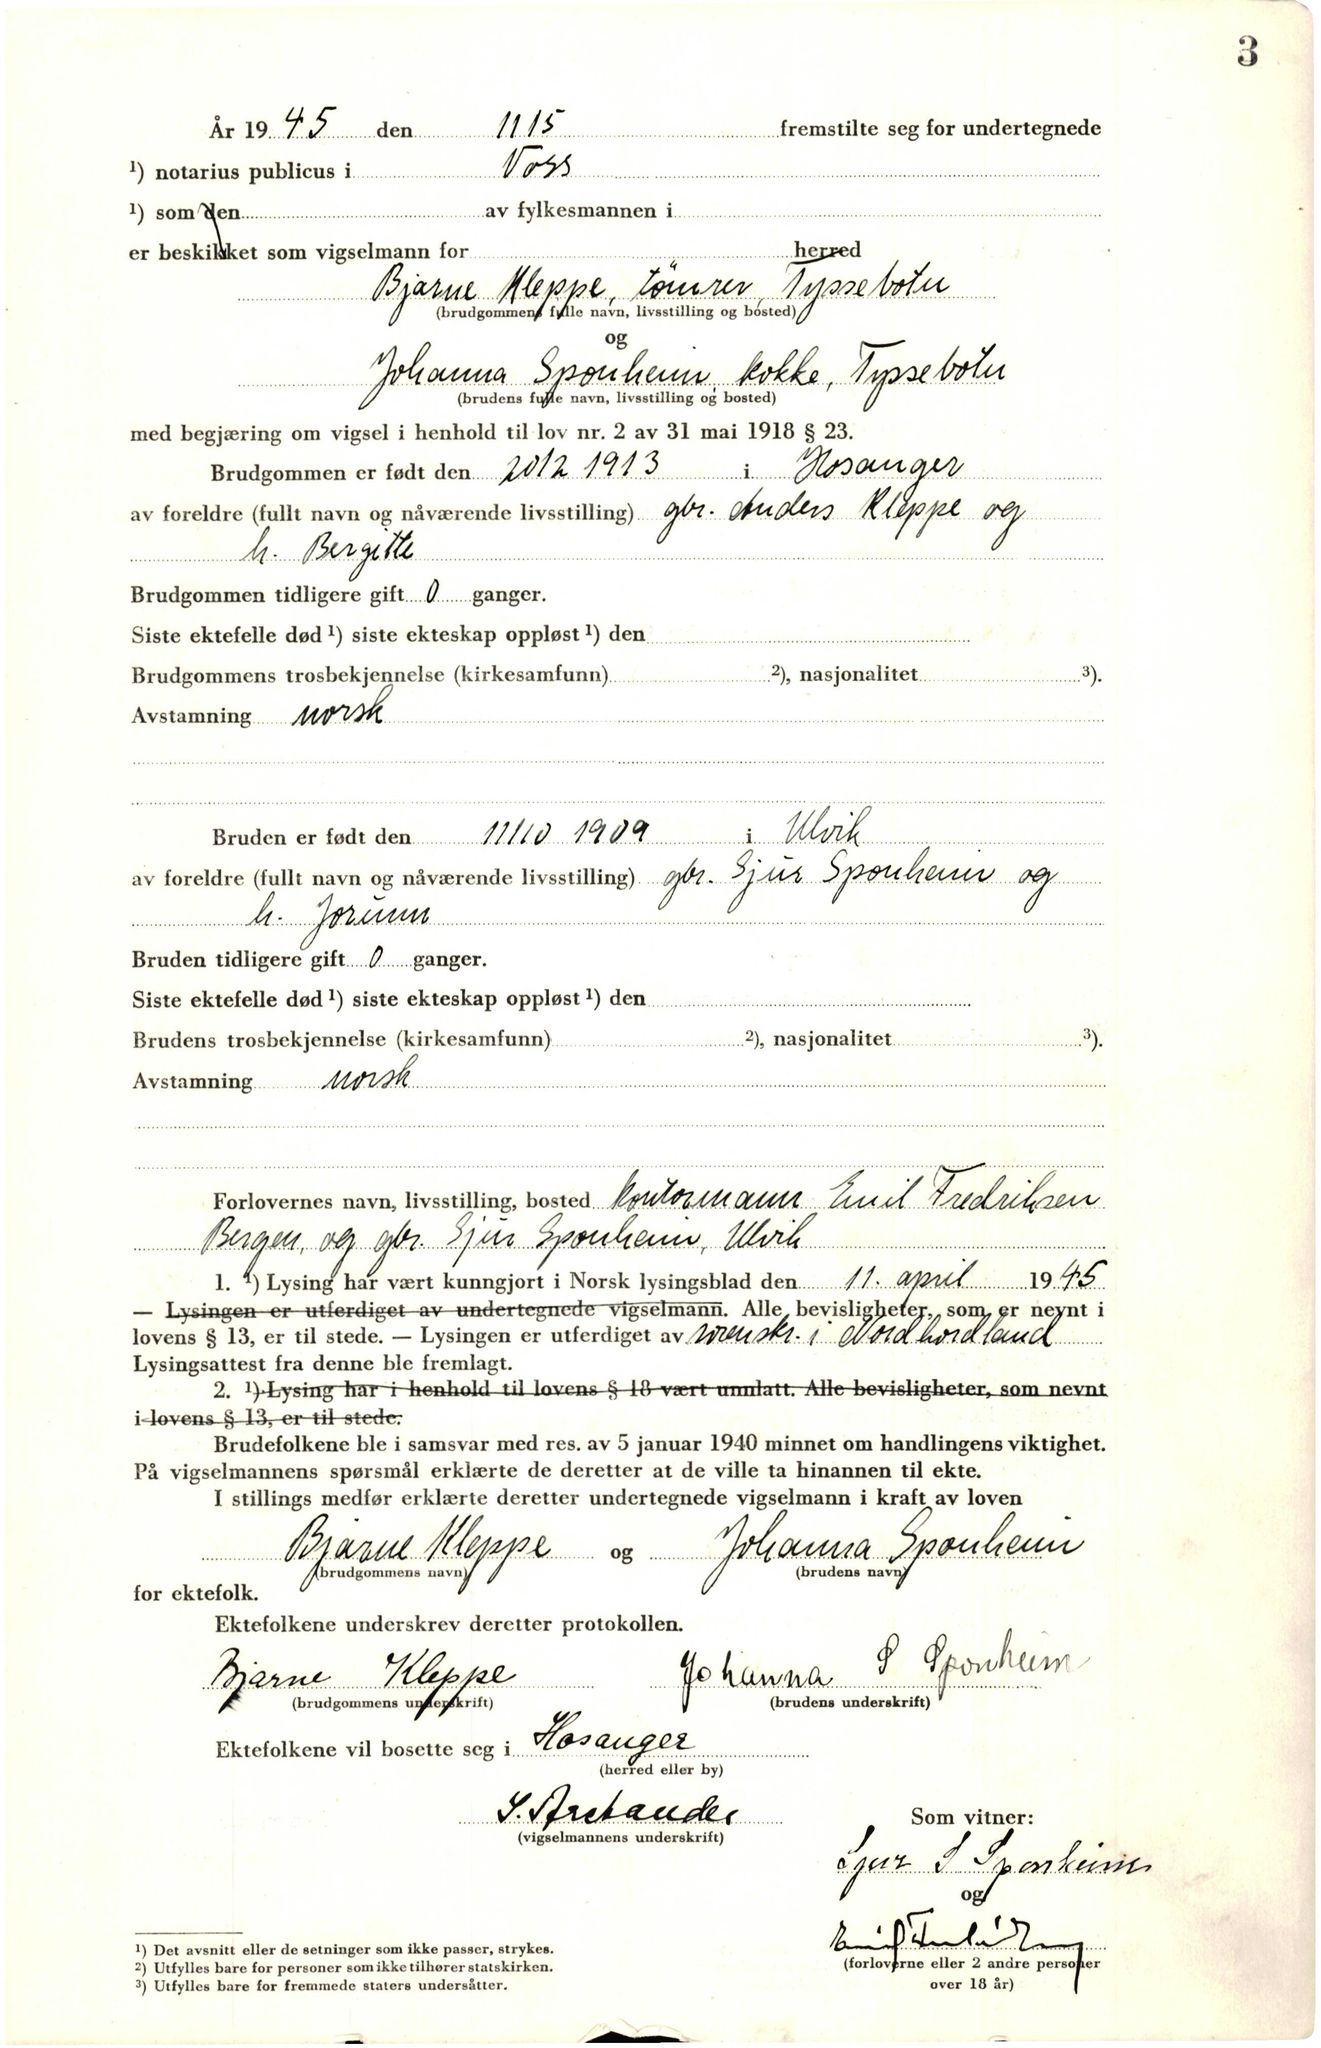 3
År 1945 den 11 15 fremstilte seg for undertegnede
¹) notarius publicus i Voss
¹) som den av fylkesmannen i
er beskikket som vigselmann for herred
Bjarne Kleppe, tömrer, Tyssebotn
(brudgommens fulle navn, livsstilling og bosted)
og
Johanna Sponheim, kokke, Tyssebotn
(brudens fulle navn, livsstilling og bosted)
med begjæring om vigsel i henhold til lov nr. 2 av 31 mai 1918 § 23.
Brudgommen er født den 20/12 1913 i Hosanger
av foreldre (fullt navn og nåværende livsstilling) gbr. Anders Kleppe og
h. Bergitte
Brudgommen tidligere gift 0 ganger.
Siste ektefelle død ¹) siste ekteskap oppløst ¹) den
Brudgommens trosbekjennelse (kirkesamfunn) ²), nasjonalitet ³).
Avstamning norsk
Bruden er født den 11/10 1909 i Ulvik
av foreldre (fullt navn og nåværende livsstilling) gbr. Sjur Sponheim og
h. Jorunn
Bruden tidligere gift 0 ganger.
Siste ektefelle død ¹) siste ekteskap oppløst ¹) den
Brudens trosbekjennelse (kirkesamfunn) ²), nasjonalitet ³).
Avstamning norsk
Forlovernes navn, livsstilling, bosted kontormann Emil Fredriksen
Bergen, og gbr. Sjur Sponheim, Ulvik
1. ¹) Lysing har vært kunngjort i Norsk lysingsblad den 11. april 1945
— Lysingen er utferdiget av undertegnede vigselmann. Alle bevisligheter, som er nevnt i
lovens § 13, er til stede. — Lysingen er utferdiget av sorenskr. i Nordhordland
Lysingsattest fra denne ble fremlagt.
2. ¹) Lysing har i henhold til lovens § 18 vært unnlatt. Alle bevisligheter, som nevnt
i lovens § 13, er til stede.
Brudefolkene ble i samsvar med res. av 5 januar 1940 minnet om handlingens viktighet.
På vigselmannens spørsmål erklærte de deretter at de ville ta hinannen til ekte.
I stillings medfør erklærte deretter undertegnede vigselmann i kraft av loven
Bjarne Kleppe og Johanna Sponheim
(brudgommens navn) (brudens navn)
for ektefolk.
Ektefolkene underskrev deretter protokollen.
Bjarne Kleppe Johanna S Sponheim
(brudgommens underskrift) (brudens underskrift)
Ektefolkene vil bosette seg i Hosanger
(herred eller by)
S. Arctander Som vitner:
(vigselmannens underskrift)
Sjur S Sponheim
og
Emil Fredriksen
(forloverne eller 2 andre personer
over 18 år)
¹) Det avsnitt eller de setninger som ikke passer, strykes.
²) Utfylles bare for personer som ikke tilhører statskirken.
³) Utfylles bare for fremmede staters undersåtter.